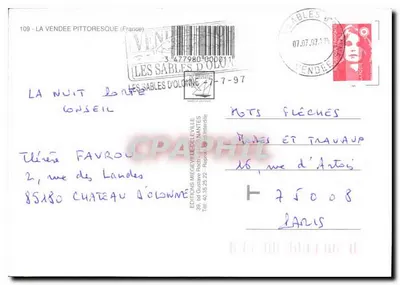 109 - LA VENDEE PITTORESQUE (France)
VENDEE
3 477980 000011
LES SABLES D'OLO
LES SABLES D'OLONNE -7-7-97
SABLES
07.07.97
VENDEE
LA NUIT PORTE
CONSEIL
Thérèse FAVROU
2, rue des Landes
85180 CHATEAU D'OLONNE
EDITIONS
NANTES
MOTS FLÉCHÉS
BUTES ET TRAVAUX
16, rue d'Artois
75008
PARIS